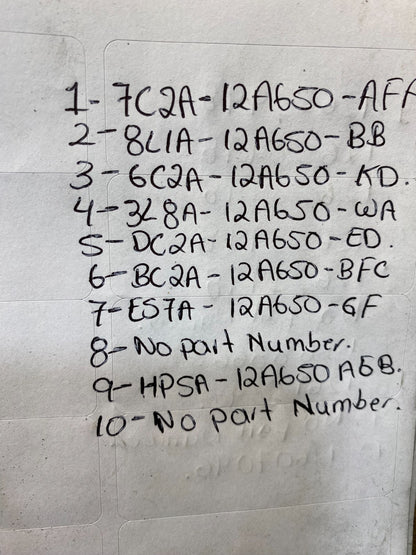 1- 7C2A- 12A650 -AFA
2- 8L1A- 12A650- BB
3- 6C2A- 12A650- KD.
4- 3L8A- 12A650 -WA
5- DC2A- 12A650- ED.
6- BC2A- 12A650-BFC
7- ES7A - 12A650 -GF
8- No part Number.
9- HPSA - 12A650 AEB.
10- No part Number.